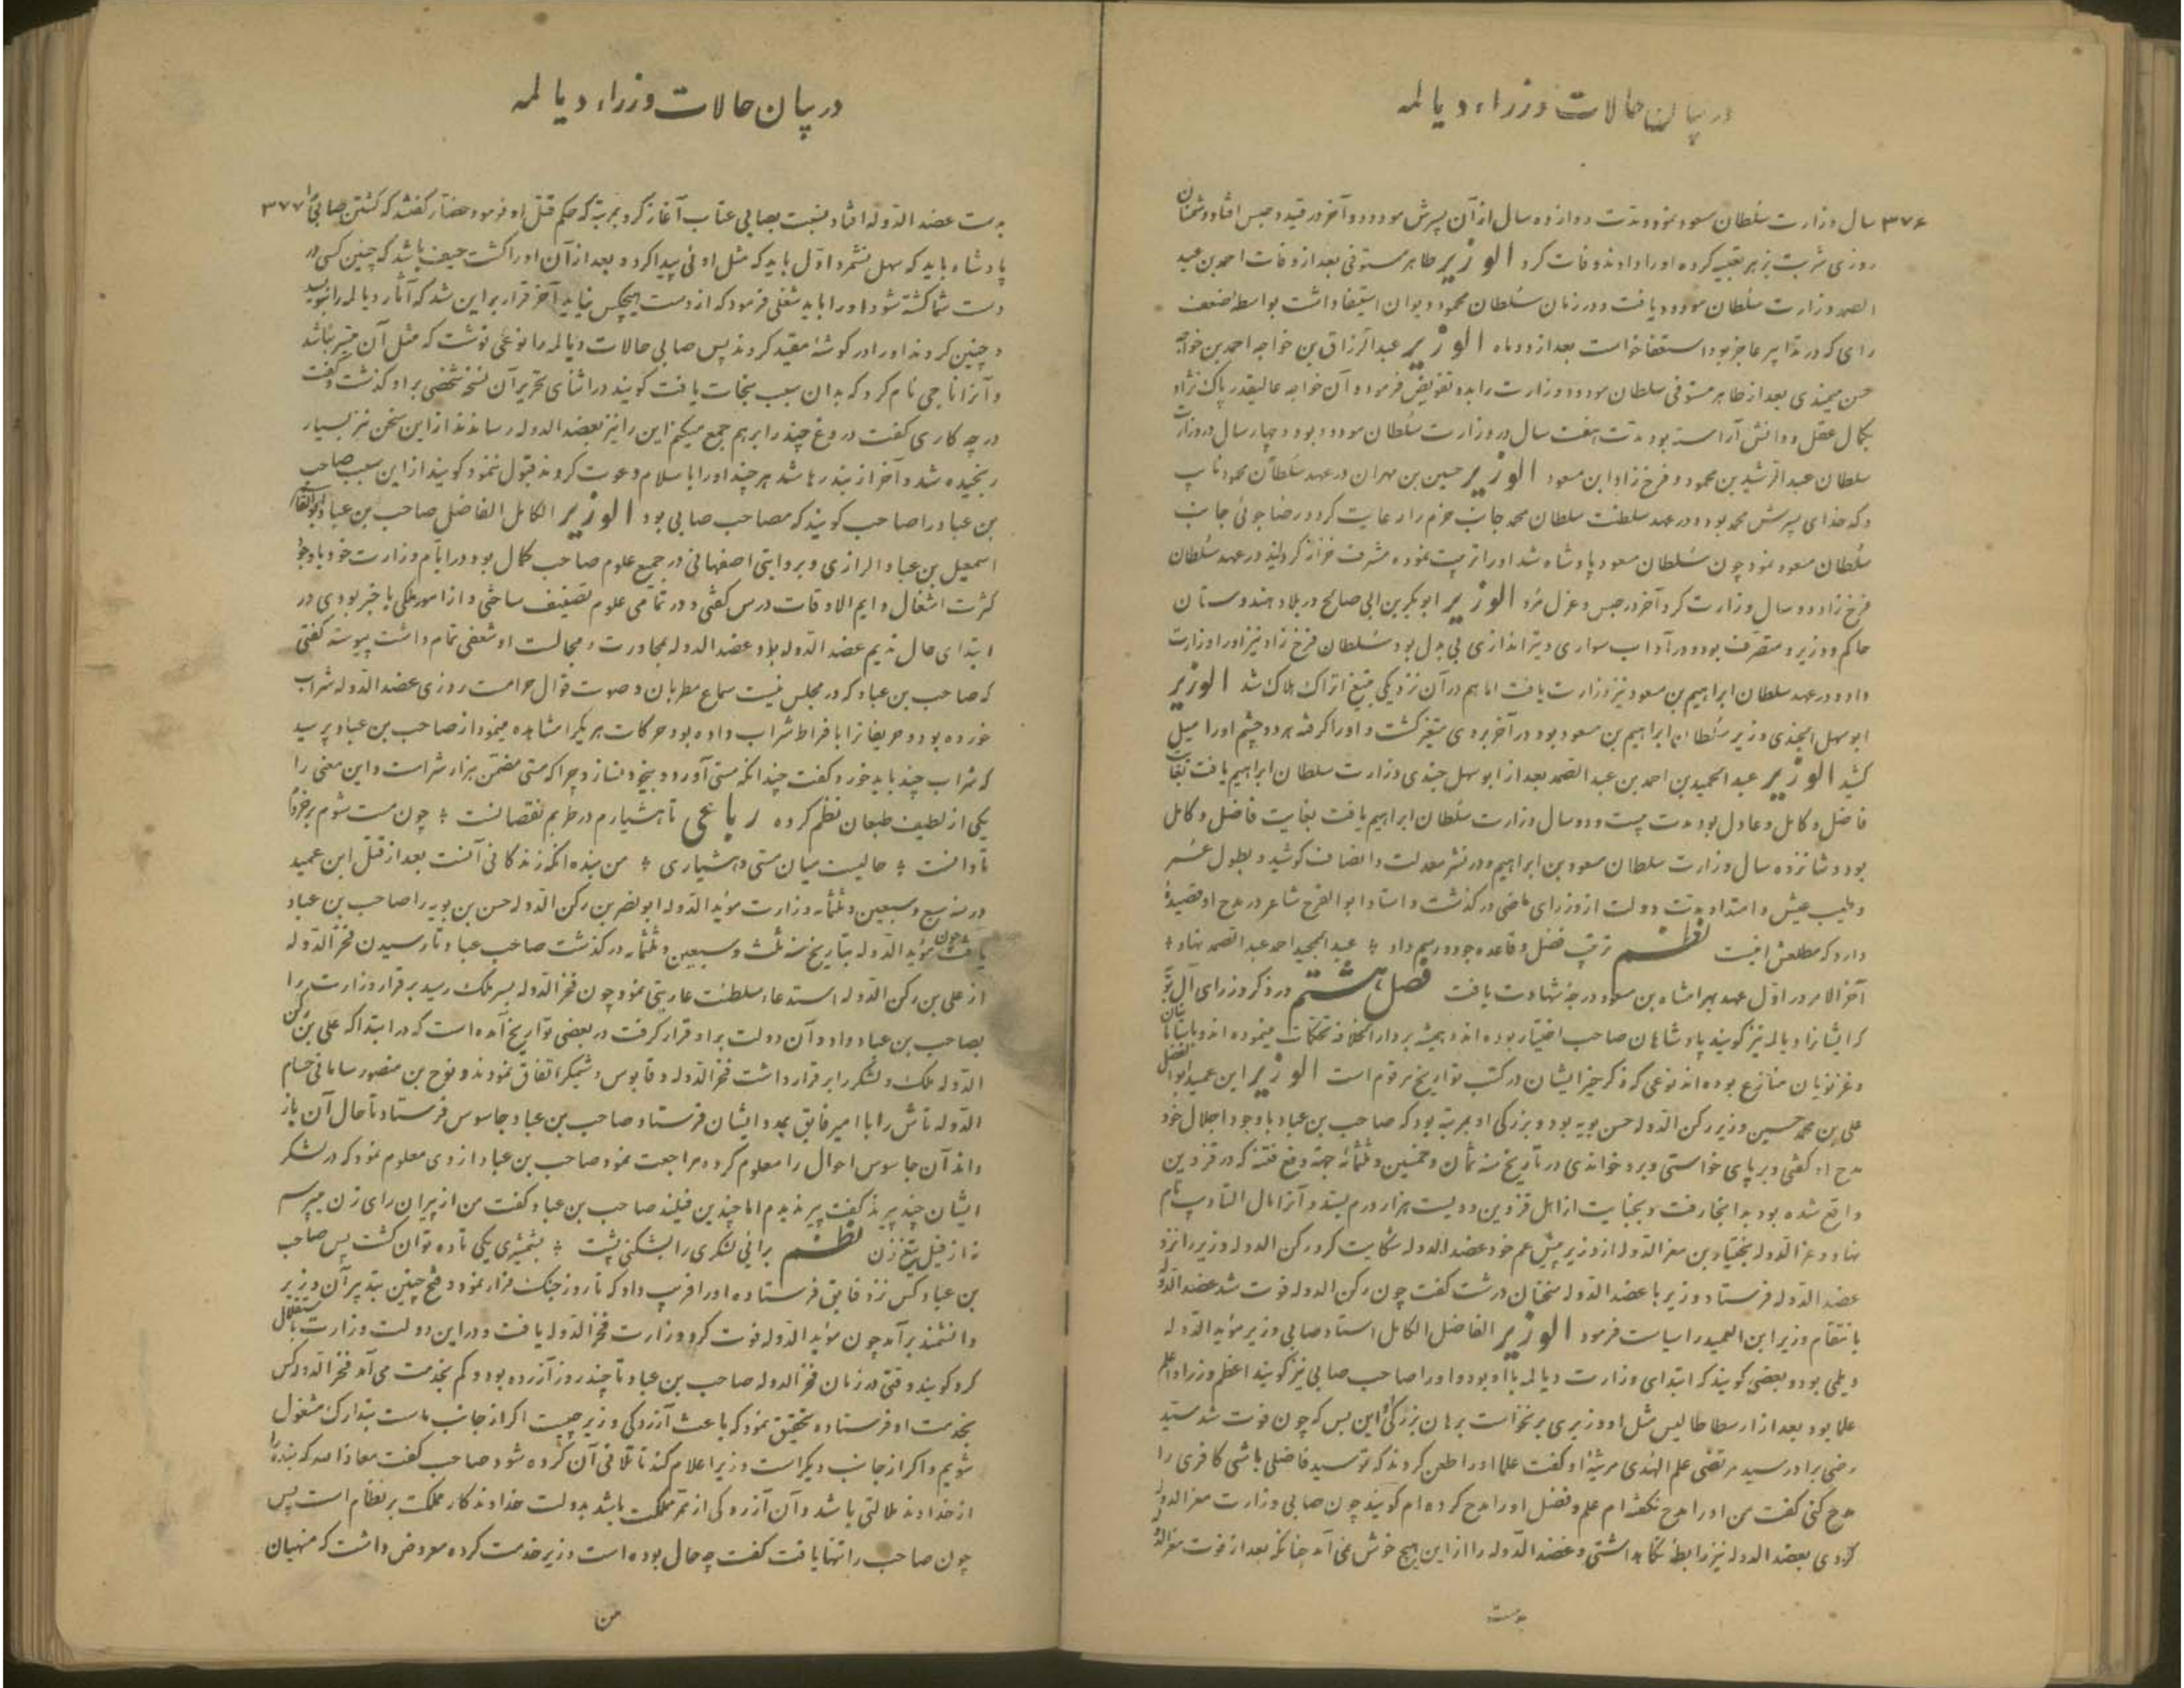 در بیان حالات وزراء دیالمه
۳۷۶ سال وزارت سلطان مسعود نمود و مدت دوازده سال از آن پسرش مودود و آخر در قید و حبس افتاد و دشمنان
روزی شربت بزهر تعبیه کرده او را دادند وفات کرد الوزیر طاهر مستوفی بعد از وفات احمد بن عبد
الصمد وزارت سلطان مودود یافت و در زمان سلطان محمود دیوان استیفا داشت بواسطه ضعف
رای که در تدابیر عاجز بود استعفا خواست بعد از دو ماه الوزیر عبدالرزاق بن خواجه احمد بن خواجه
حسن میمندی بعد از طاهر مستوفی سلطان مودود وزارت را بدو تفویض فرمود و آن خواجه عالیقدر پاک نژاد
بکمال عقل و دانش آراسته بود مدت هفت سال در وزارت سلطان مودود بود و چهار سال در وزارت
سلطان عبدالرشید بن محمود و فرخ زاد ابن مسعود الوزیر حسین بن مهران در عهد سلطان محمود نایب
و کدخدای پسرش محمد بود و در عهد سلطنت سلطان محمد جانب حزم را رعایت کرد و رضا جوئی جانب
سلطان مسعود نمود چون سلطان مسعود پادشاه شد او را تربیت نموده مشرف خزانه گردانید در عهد سلطان
فرخ زاد دو سال وزارت کرد آخر در حبس و عزل مرد الوزیر ابوبکر بن ابی صالح در بلاد هندوستان
حاکم و وزیر و متصرف بود و در آداب سواری و تیراندازی بی بدل بود سلطان فرخ زاد نیز او را وزارت
داد و در عهد سلطان ابراهیم بن مسعود نیز وزارت یافت اما هم در آن نزدیکی بتیغ اتراک هلاک شد الوزیر
ابوسهل الخجندی وزیر سلطان ابراهیم بن مسعود بود در آخر بر وی متغیر گشت و او را گرفته هر دو چشم او را میل
کشید الوزیر عبدالحمید بن احمد بن عبدالصمد بعد از ابوسهل خجندی وزارت سلطان ابراهیم یافت بغایت
فاضل و کامل و عادل بود مدت بیست و دو سال وزارت سلطان ابراهیم یافت بغایت فاضل و کامل
بود و شانزده سال وزارت سلطان مسعود بن ابراهیم و در نشر معدلت و انصاف کوشید و بطول عمر
و طیب عیش و امتداد مدت دولت از وزرای ماضی درگذشت و استاد ابوالفرج شاعر در مدح او قصیدهٔ
دارد که مطلعش اینست نظم ترتیب فضل و قاعده جود و رسم داد عبدالحمید احمد عبدالصمد نهاد
آخر الامر در اول عهد بهرامشاه بن مسعود درجهٔ شهادت یافت فصل هشتم در ذکر وزرای آل بویه
که ایشانرا دیالمه نیز گویند پادشاهان صاحب اختیار بوده اند و همیشه بر دارالخلافه تحکمات مینموده اند و با سامانیان
و غزنویان منازع بوده اند نوعی که ذکر خیر ایشان در کتب تواریخ مرقوم است الوزیر ابن عمید ابوالفضل
علی بن محمد حسین وزیر رکن الدوله حسن بویه بود و بزرگی او بمرتبه بود که صاحب بن عباد با وجود اجلال خود
مدح او گفتی و بر پای خواستی و برو خواندی در تاریخ سنه ثمان و خمسین و ثلثمائه جهة دفع فتنه که در قزوین
واقع شده بود بدانجا رفت و بجنایت از اهل قزوین دویست هزار درم بستد و آنرا مال التادیب نام
نهاد و عزالدوله بختیار بن معزالدوله از وزیر پیش عم خود عضدالدوله شکایت کرد رکن الدوله وزیر را نزد
عضدالدوله فرستاد وزیر با عضدالدوله سخنان درشت گفت چون رکن الدوله فوت شد عضدالدوله
بانتقام وزیر ابن العمید را سیاست فرمود الوزیر الفاضل الکامل استاد صابی وزیر مؤیدالدوله
دیلمی بود و بعضی گویند که ابتدای وزارت دیالمه با او بود و او را صاحب صابی نیز گویند اعظم وزرا و اعلم
علما بود بعد از ارسطاطالیس مثل او وزیری برنخاست برهان بزرگی او این بس که چون فوت شد سید
رضی برادر سید مرتضی علم الهدی مرثیهٔ او گفت علما او را طعن کردند که تو سید فاضلی باشی کافری را
مدح کنی گفت من او را مدح نگفته ام علم و فضل او را مدح کرده ام گویند چون صابی وزارت معزالدوله
کردی بعضدالدوله نیز رابطه نگاه داشتی و عضدالدوله را از این هیچ خوش نمی آمد چنانکه بعد از فوت معزالدوله
بدست
در بیان حالات وزراء دیالمه
بدست عضدالدوله افتاد نسبت بصابی عتاب آغاز کرد بمرتبه که حکم قتل او فرمود حضار گفتند که کشتن صابی را ۳۷۷
پادشاه باید که سهل نشمرد اول باید که مثل اوئی پیدا کرد و بعد از آن او را کشت حیف باشد که چنین کسی در
دست شما کشته شود او را باید شغلی فرمود که از دست هیچکس نیاید آخر قرار بر این شد که آثار دیالمه را بنویسد
و چنین کردند او را در گوشهٔ مقید کردند پس صابی حالات دیالمه را نوعی نوشت که مثل آن میسر نباشد
و آنرا تاجی نام کرد که بدان سبب نجات یافت گویند در اثنای تحریر آن نسخه شخصی بر او گذشت و گفت
در چه کاری گفت دروغ چند را بر هم جمع میکنم این را نیز بعضدالدوله رساندند از این سخن نیز بسیار
رنجیده شد و آخر از بند رها شد هر چند او را باسلام دعوت کردند قبول ننمود گویند از این سبب صاحب
بن عباد را صاحب گویند که مصاحب صابی بود الوزیر الکامل الفاضل صاحب بن عباد ابوالقاسم
اسمعیل بن عباد الرازی و بروایتی اصفهانی در جمیع علوم صاحب کمال بود و در ایام وزارت خود با وجود
کثرت اشغال دایم الاوقات درس گفتی و در تمامی علوم تصنیف ساختی و از امور ملکی باخبر بودی در
ابتدای حال ندیم عضدالدوله بود و عضدالدوله بمجاورت و مجالست او شعفی تمام داشت پیوسته گفتی
که صاحب بن عباد که در مجلس نیست سماع مطربان و صوت قوال حرامست روزی عضدالدوله شراب
خورده بود و حریفانرا بافراط شراب داده بود حرکات هر یکرا مشاهده مینمود از صاحب بن عباد پرسید
که شراب چند باید خورد گفت چندانکه مستی آورد و بیخود نسازد چرا که مستی متضمن هزار شر است و این معنی را
یکی از لطیف طبعان نظم کرده رباعی تا هشیارم در طربم نقصانست چون مست شوم بر خردم
تاوانست حالیست میان مستی و هشیاری من بنده آنکه زندگانی آنست بعد از قتل ابن عمید
در سنه سبع و سبعین و ثلثمائه وزارت مؤیدالدوله ابونصر بن رکن الدوله حسن بن بویه را صاحب بن عباد
یافت چون مؤیدالدوله بتاریخ سنه ثلث و سبعین و ثلثمائه درگذشت صاحب عباد تا رسیدن فخرالدوله
از علی بن رکن الدوله استدعاء سلطنت عاریتی نمود چون فخرالدوله بسر ملک رسید برقرار وزارت را
بصاحب بن عباد داد و آن دولت بر او قرار گرفت در بعضی تواریخ آمده است که در ابتدا که علی بن رکن
الدوله ملک و لشکر را برقرار داشت فخرالدوله و قابوس وشمگیر اتفاق نمودند و نوح بن منصور سامانی حسام
الدوله تاش را با امیر فایق بمدد ایشان فرستاد صاحب بن عباد جاسوس فرستاد تا حال آن باز
داند آن جاسوس احوال را معلوم کرده مراجعت نمود صاحب بن عباد از وی معلوم نمود که در لشکر
ایشان چند پیرند گفت پیر ندیدم اما چندین فیلند صاحب بن عباد گفت من از پیران رای زن میپرسم
نه از فیل تیغ زن نظم برائی لشکری را بشکنی پشت بشمشیری یکی تا ده توان کشت پس صاحب
بن عباد کس نزد فایق فرستاده او را فریب داد که تا روز جنگ فرار نمود و فتح چنین بتدبیر آن وزیر
دانشمند برآمد چون مؤیدالدوله فوت کرد وزارت فخرالدوله یافت و در این دولت وزارت باستقلال
کرد گویند وقتی در زمان فخرالدوله صاحب بن عباد تا چند روز آزرده بود و کم بخدمت می آمد فخرالدوله کس
بخدمت او فرستاده تحقیق نمود که باعث آزردگی وزیر چیست اگر از جانب ماست بتدارک مشغول
شویم و اگر از جانب دیگر است وزیر اعلام کند تا تلافی آن کرده شود صاحب گفت معاذ الله که بنده را
از خداوند ملالتی باشد و آن آزردگی از ممر مملکت باشد بدولت خداوند کار مملکت بر نظام است پس
چون صاحب را تنها یافت گفت چه حال بوده است وزیر خدمت کرده معروض داشت که منهیان
من